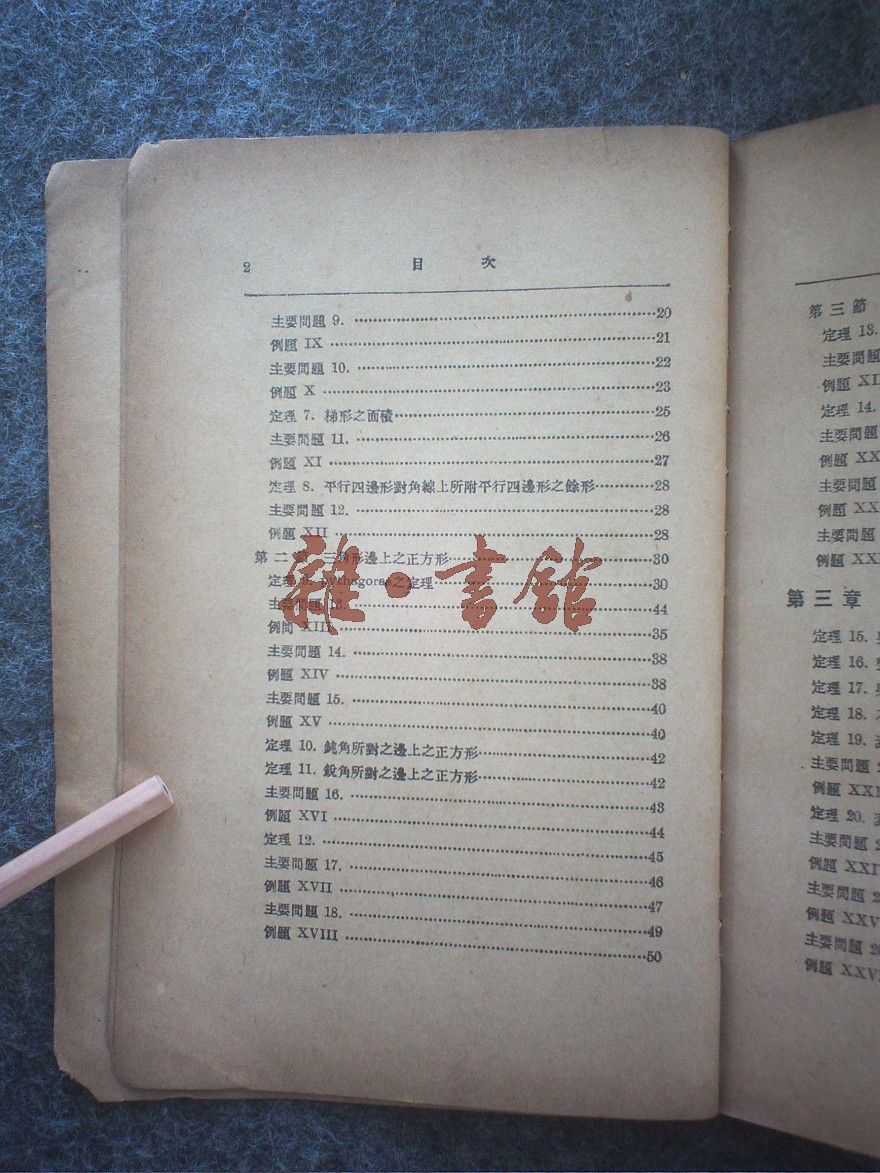 2 目 次
主要問題 9. 20
例題 IX 21
主要問題 10. 22
例題 X 23
定理 7. 梯形之面積 25
主要問題 11. 26
例題 XI 27
定理 8. 平行四邊形對角線上所附平行四邊形之餘形 28
主要問題 12. 28
例題 XII 28
第二 三角形邊上之正方形 30
定理 9. Pythagoras之定理 30
主要問題 13. 44
例問 XIII 35
主要問題 14. 38
例題 XIV 38
主要問題 15. 40
例題 XV 40
定理 10. 鈍角所對之邊上之正方形 42
定理 11. 銳角所對之邊上之正方形 42
主要問題 16. 43
例題 XVI 44
定理 12. 45
主要問題 17. 46
例題 XVII 47
主要問題 18. 49
例題 XVIII 50
雜·書館
第三節
定理 13.
主要問題
例題 XI
定理 14.
主要問題
例題 XX
主要問題
例題 XX
主要問題
例題 XX
第三章
定理 15.
定理 16.
定理 17.
定理 18.
定理 19.
主要問題 2
例題 XXI
定理 20.
主要問題 2
例題 XXI
主要問題 2
例題 XXV
主要問題 2
例題 XXV